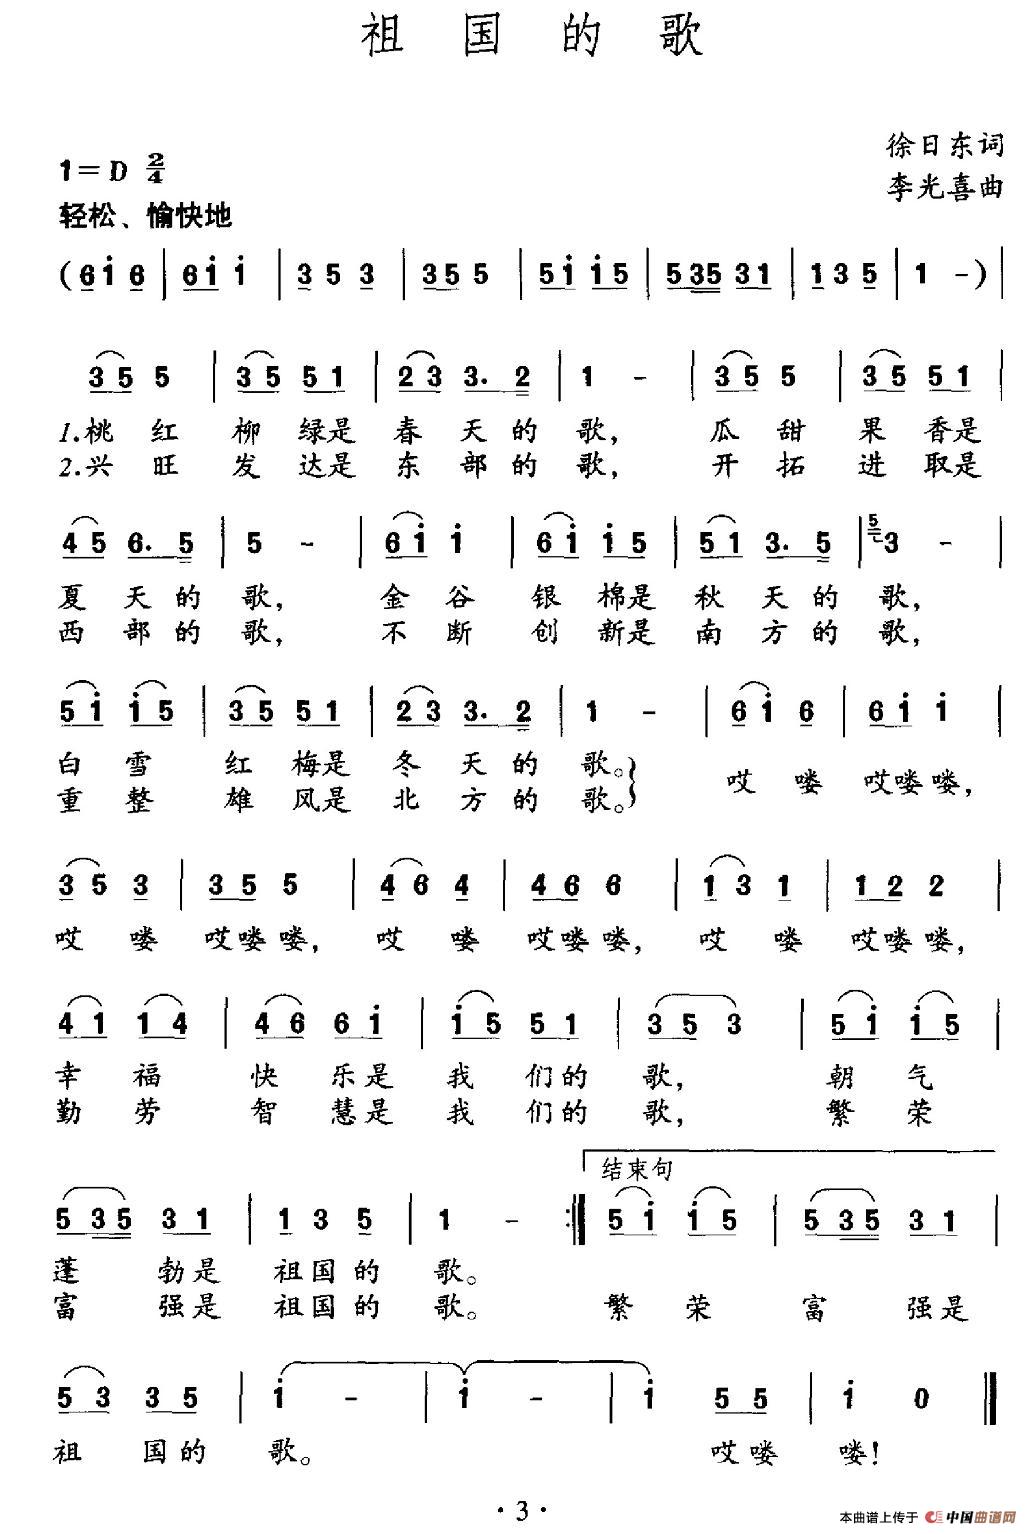 祖国的歌
徐日东词
1=D 2/4
李光喜曲
轻松、愉快地
(6 i 6 | 6 i i | 3 5 3 | 3 5 5 | 5 i i 5 | 5 3 5 3 1 | 1 3 5 | 1 - ) |
3 5 5 | 3 5 5 1 | 2 3 3. 2 | 1 - | 3 5 5 | 3 5 5 1 |
1.桃红 柳绿是 春天的 歌, 瓜甜 果香是
2.兴旺 发达是 东部的 歌, 开拓 进取是
4 5 6. 5 | 5 - | 6 i i | 6 i i 5 | 5 1 3. 5 | 5 3 - |
夏天的 歌, 金谷 银棉是 秋天的 歌,
西部的 歌, 不断 创新是 南方的 歌,
5 i i 5 | 3 5 5 1 | 2 3 3. 2 | 1 - | 6 i 6 | 6 i i |
白雪 红梅是 冬天的 歌。} 哎喽 哎喽喽,
重整 雄风是 北方的 歌。}
3 5 3 | 3 5 5 | 4 6 4 | 4 6 6 | 1 3 1 | 1 2 2 |
哎喽 哎喽喽, 哎喽 哎喽喽, 哎喽 哎喽喽,
4 1 1 4 | 4 6 6 i | i 5 5 1 | 3 5 3 | 5 i i 5 |
幸福 快乐是 我们的 歌, 朝气
勤劳 智慧是 我们的 歌, 繁荣
结束句
5 3 5 3 1 | 1 3 5 | 1 - :| 5 i i 5 | 5 3 5 3 1 |
蓬勃是 祖国的 歌。
富强是 祖国的 歌。 繁荣 富强是
5 3 3 5 | i - | i - | i 5 5 | i 0 ||
祖国的 歌。 哎喽喽!
·3·
本曲谱上传于 中国曲谱网